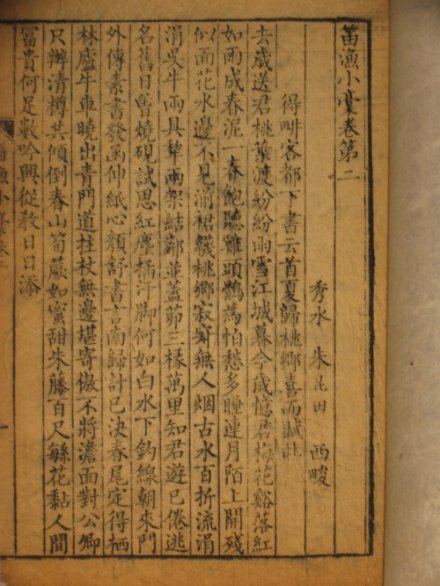 笛漁小稾卷第二
秀水 朱昆田 西畯
得畊客都下書云首夏歸桃鄉喜而賦此
去歲送君桃葉渡紛紛雨雪江城暮今歲憶君梅花谿落紅
如雨成春泥一春飽聽雅頭鶻為怕愁多睡連月陌上開殘
似面花水邊不見湔裙襪桃鄉寂寞無人烟古水百折流涓
涓吳牛兩具犂兩架結鄰並蓋茆三椽萬里知君遊已倦逃
名舊日曾燒硯試思紅塵汗脚何如白水下鈎線朝來門
外傳素書發函伸紙心顏舒書言南歸計已決春尾定得栖
林廬牛車曉出青門道拄杖無邊堪寄傲不將澹面對公卿
尺辦清樽共傾倒春山筍蕨如蜜甜朱藤百尺緐花黏人間
冨貴何足數吟興從敎日日添